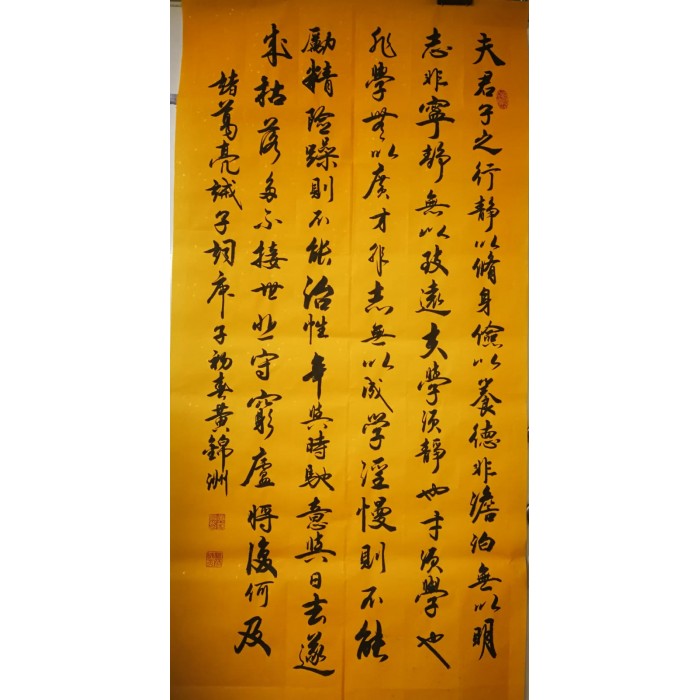 夫君子之行静以脩身儉以養德非澹泊無以明
志非寧靜無以致遠夫學須靜也才須學也
非學無以廣才非志無以成學淫慢則不能
勵精險躁則不能治性年與時馳意與日去遂
成枯落多不接世悲守窮廬將復何及
諸葛亮誡子詞庚子初春黃錦洲